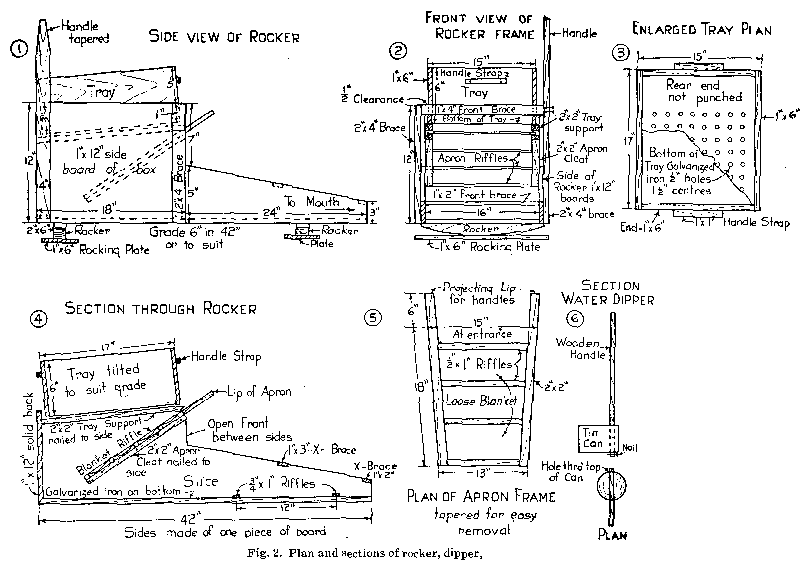 ①
Handle
tapered
SIDE VIEW OF ROCKER
5"
Tray
1"
12"
4"
1"x12" side
board of box
7"
2"x4" Brace
5"
18"
24"
To Mouth
3"
2"x6"
Rocker
1"x6" Rocking Plate
Grade 6" in 42"
or to suit
Rocker
Plate
②
FRONT VIEW OF
ROCKER FRAME
Handle
15"
1"x6"
Handle Strap
6"
Tray
1/2"
Clearance
1"x4" Front Brace
Bottom of Tray
2"x4" Brace
2"x2" Tray
support
12"
Apron Riffles
2"x2" Apron
Cleat
Side of
Rocker 1"x12"
boards
1"x2" Front brace
16"
2"x4" brace
Rocker
1"x6" Rocking Plate
③
ENLARGED TRAY PLAN
15"
Rear end
not punched
1"x6"
17"
Bottom of
Tray Galvanized
iron 1/2" holes
1 1/2" centres
End-1"x6"
1"x1" Handle Strap
④
SECTION THROUGH ROCKER
17"
Handle Strap
6"
Tray tilted
to suit grade
Lip of Apron
1"x12" solid back
2"x2" Tray Support
nailed to side
Open Front
between sides
Blanket Riffles
2"x2" Apron
Cleat nailed to
side
1"x3"-X- Brace
X-Brace
1"x2"
Galvanized iron on bottom
Sluice
3/4"x1" Riffles
12"
42"
Sides made of one piece of board
⑤
Projecting Lip
for handles
6"
15"
At entrance
1/2"x1" Riffles
18"
2"x2"
Loose Blanket
13"
PLAN OF APRON FRAME
tapered for easy
removal
SECTION
WATER DIPPER
⑥
Wooden
Handle
Tin
Can
Nail
Hole thro top
of Can
PLAN
Fig. 2. Plan and sections of rocker, dipper,